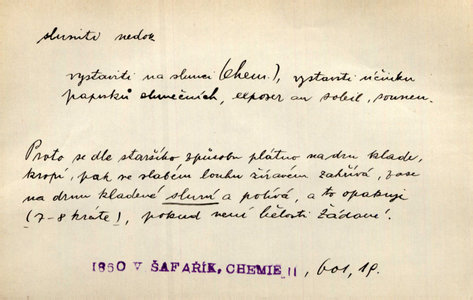 sluniti nedok
vystaviti na slunci (chem.), vystaviti účinku
paprsků slunečních, exposer au soleil, sonnen.
Proto se dle staršího způsobu plátno na drn klade,
kropí, pak ve slabém louhu žíravém zahřívá, zase
na drnu kladené sluní a polívá, a to opakují
(7-8 kráte), pokud není bělosti žádané.
1860 V ŠAFAŘÍK, CHEMIE II, 601, 19.